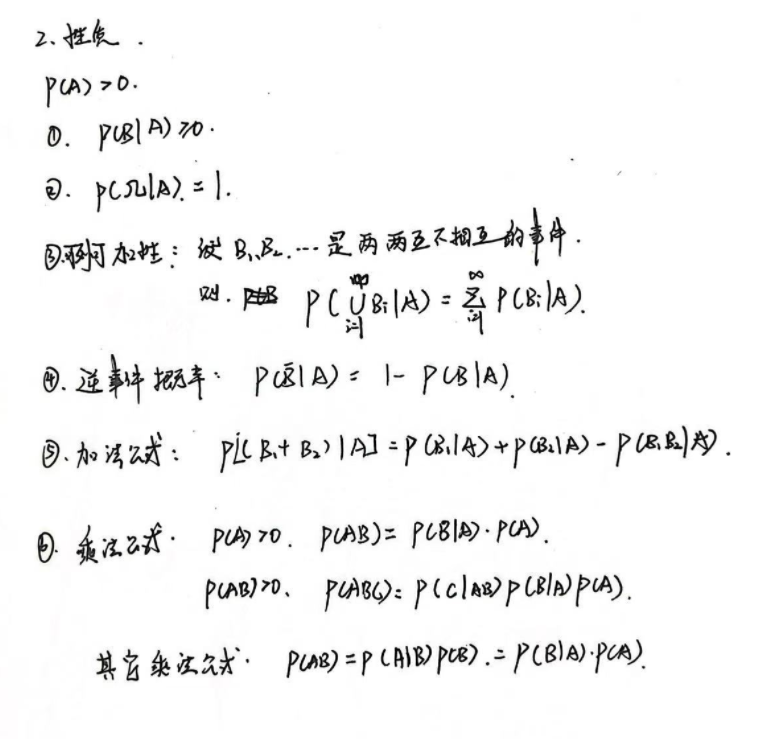 2、性质.
P(A)>0.
①. P(B|A)≥0.
②. P(Ω|A)=1.
③.可列可加性:设B₁,B₂,…是两两互不相互的事件.
则. P(⋃_{i=1}^{∞}B_i|A)=∑_{i=1}^{∞}P(B_i|A).
④.逆事件概率: P(B̄|A)= 1- P(B|A).
⑤.加法公式: P[(B₁+B₂)|A]=P(B₁|A)+P(B₂|A)-P(B₁B₂|A).
⑥.乘法公式. P(A)>0. P(AB)= P(B|A)·P(A).
P(AB)>0、 P(ABC)= P(C|AB)P(B|A)P(A).
其它乘法公式. P(AB)=P(A|B)P(B).=P(B|A)·P(A).